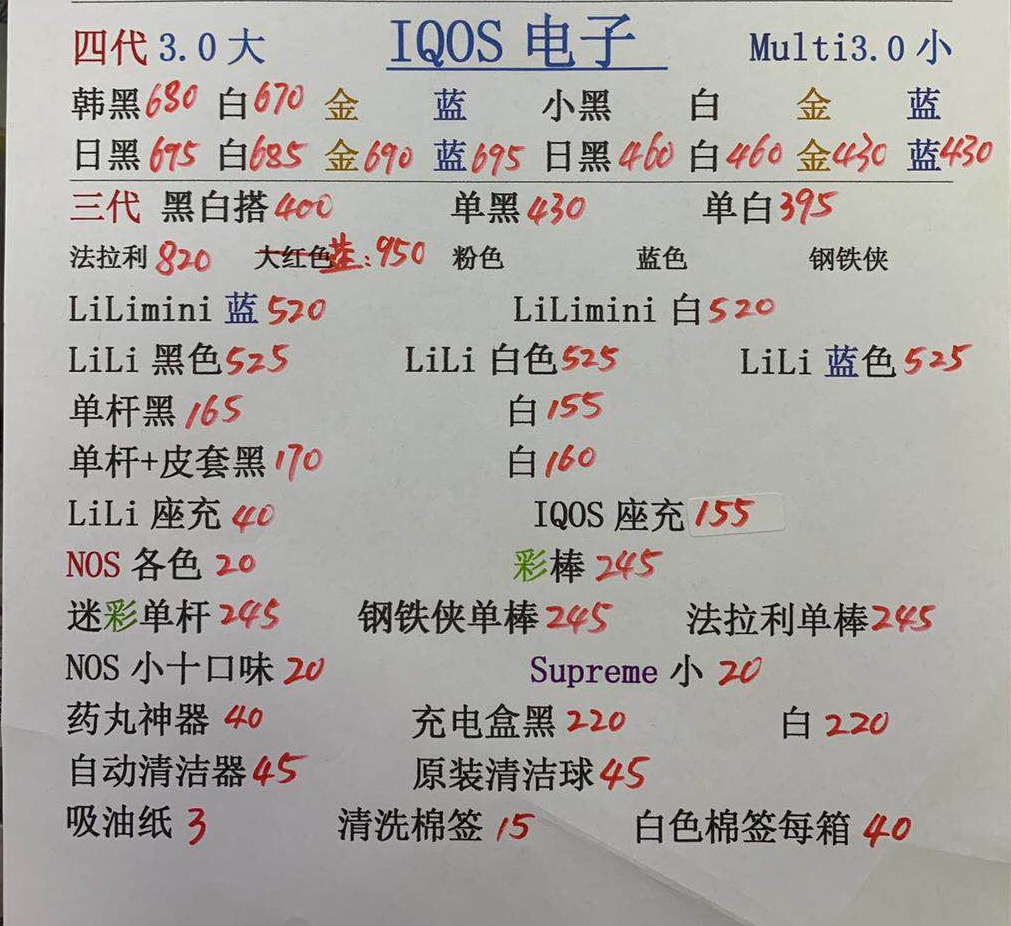 四代 3.0 大 IQOS 电子 Multi3.0 小
韩黑 680 白 670 金 蓝 小黑 白 金 蓝
日黑 695 白 685 金 690 蓝 695 日黑 460 白 460 金 430 蓝 430
三代 黑白搭 400 单黑 430 单白 395
法拉利 820 大红色 : 950 粉色 蓝色 钢铁侠
LiLimini 蓝 520 LiLimini 白 520
LiLi 黑色 525 LiLi 白色 525 LiLi 蓝色 525
单杆黑 165 白 155
单杆+皮套黑 170 白 160
LiLi 座充 40 IQOS 座充 155
NOS 各色 20 彩棒 245
迷彩单杆 245 钢铁侠单棒 245 法拉利单棒 245
NOS 小十口味 20 Supreme 小 20
药丸神器 40 充电盒黑 220 白 220
自动清洁器 45 原装清洁球 45
吸油纸 3 清洗棉签 15 白色棉签每箱 40